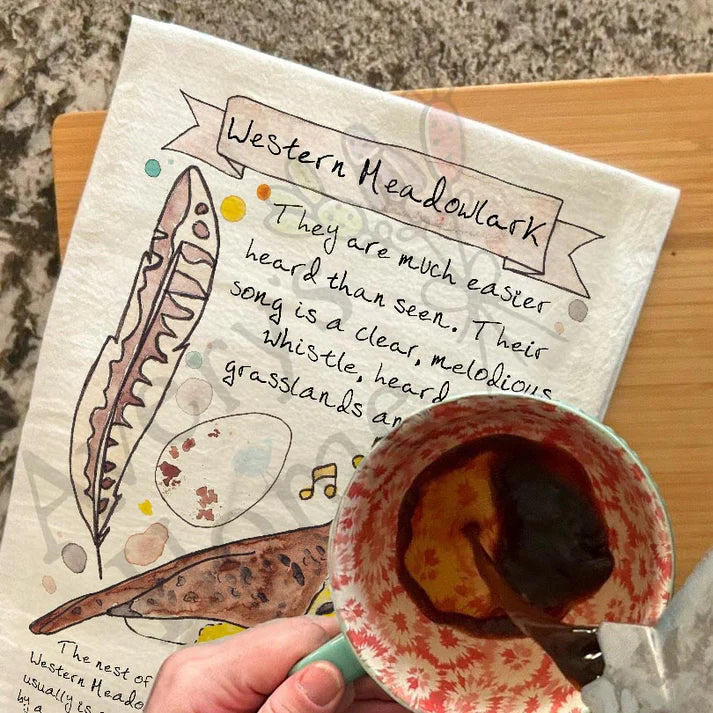 Western Meadowlark
They are much easier
heard than seen. Their
song is a clear, melodious
whistle, heard
grasslands
The nest of
Western
usually is
by a
Avery's
Home